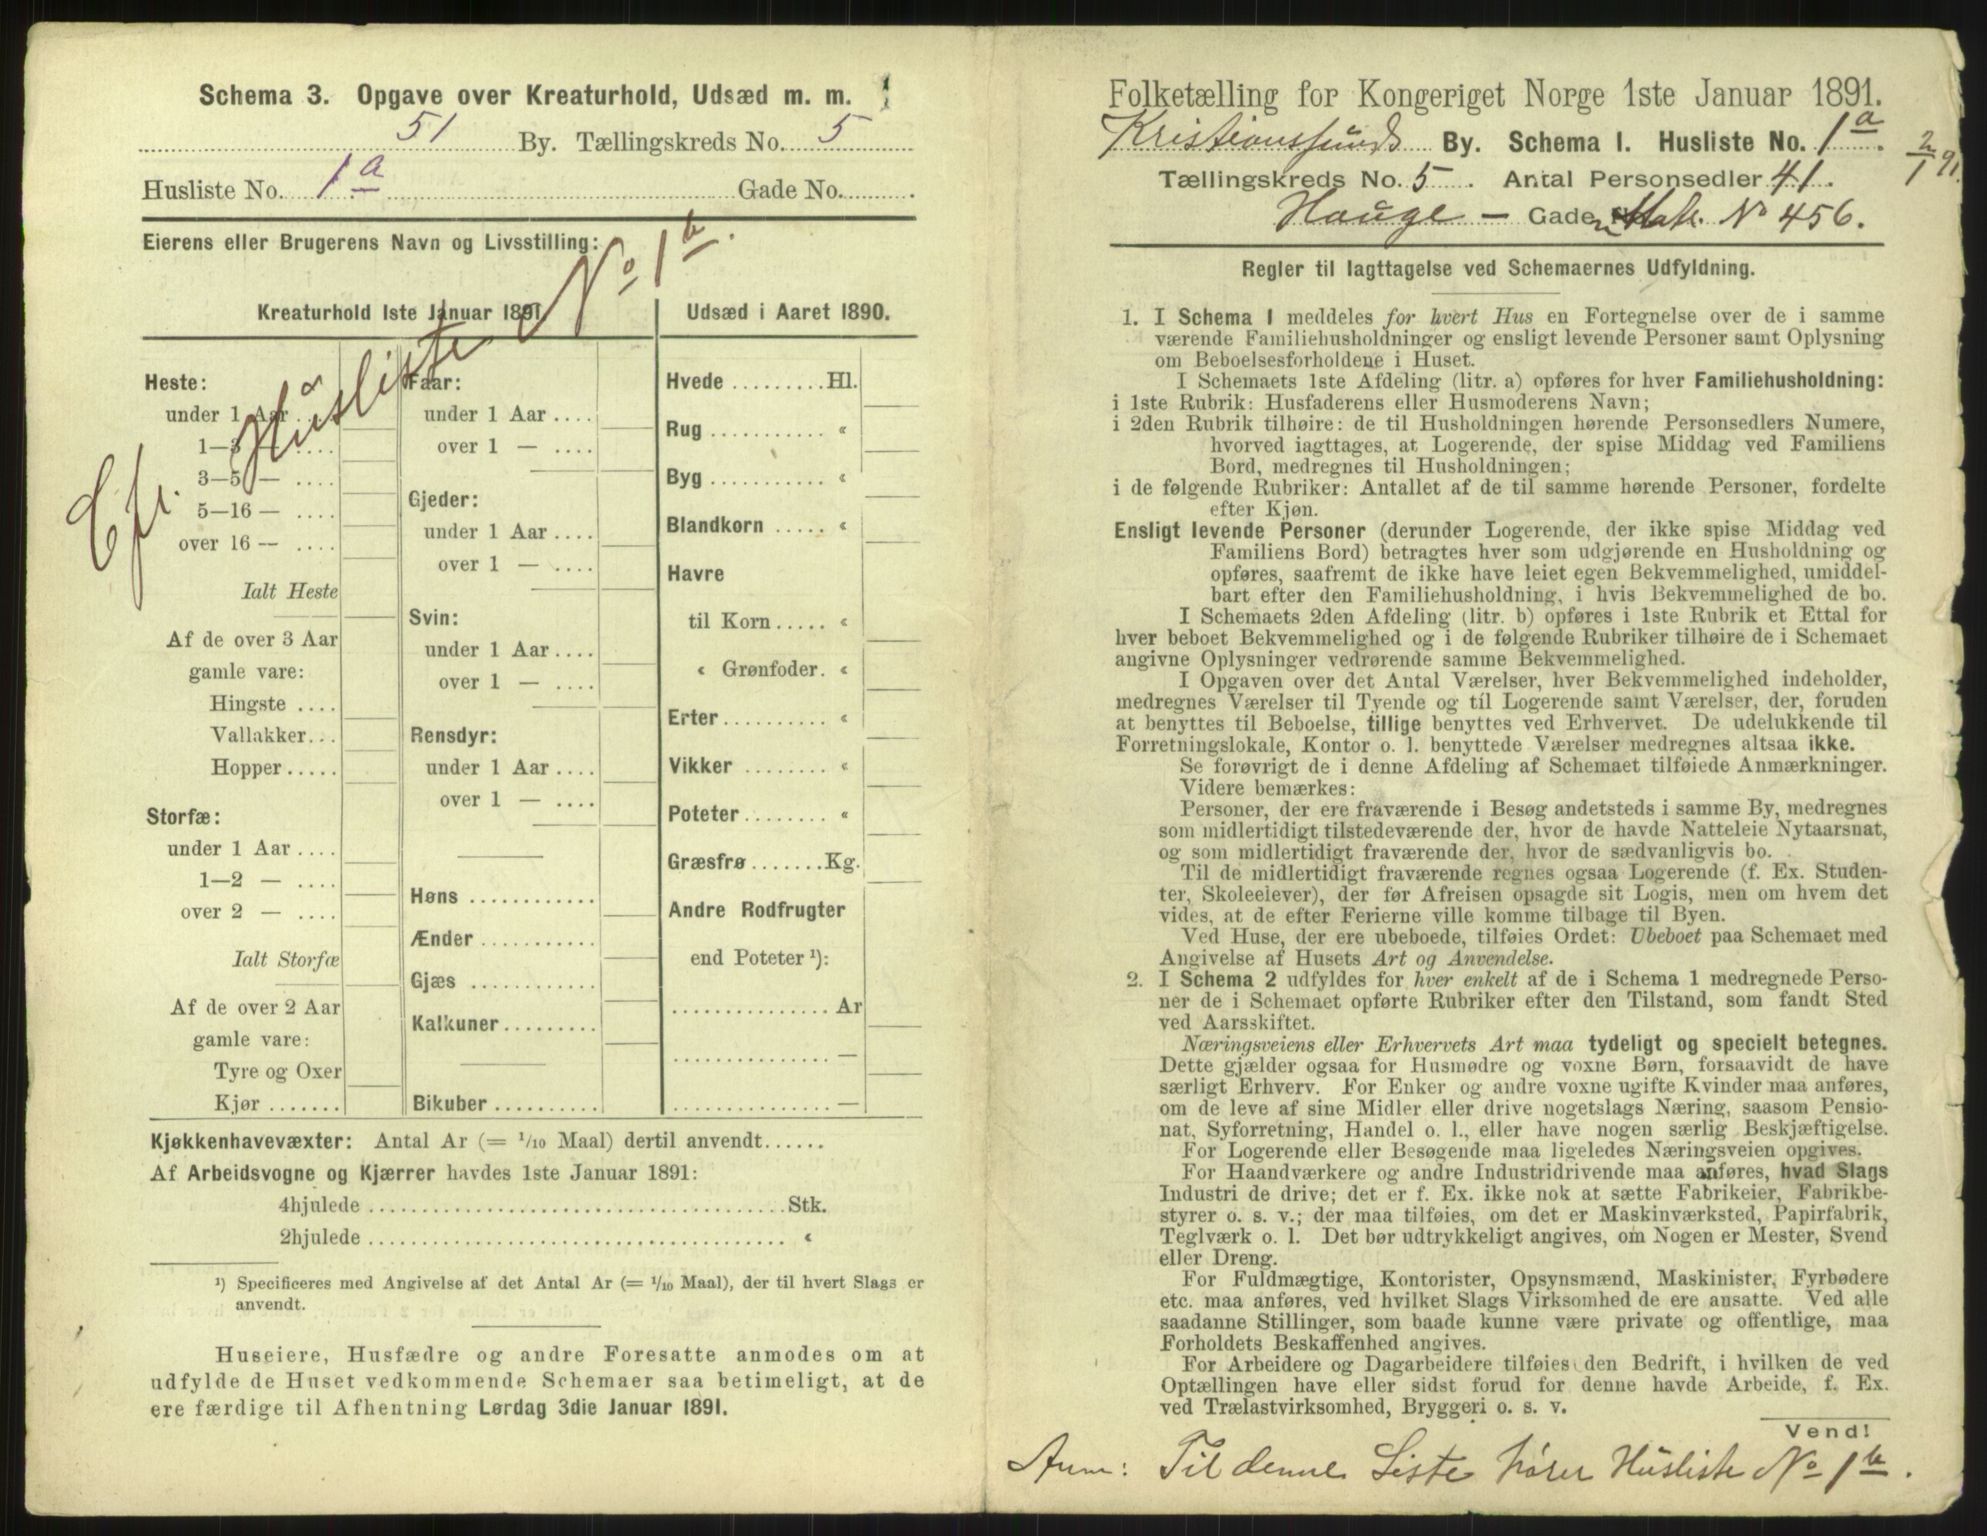 Schema 3. Opgave over Kreaturhold, Udsæd m. m.
51 By. Tællingskreds No. 5
Husliste No. 1a Gade No.
Eierens eller Brugerens Navn og Livsstilling:
Cfr. Husliste No 1b.
Kreaturhold 1ste Januar 1891.
Heste:
under 1 Aar ....
1—3 — ....
3—5 — ....
5—16 — ....
over 16 — ....
Ialt Heste
Af de over 3 Aar
gamle vare:
Hingste ....
Vallakker...
Hopper.....
Storfæ:
under 1 Aar ....
1—2 — ....
over 2 — ....
Ialt Storfæ
Af de over 2 Aar
gamle vare:
Tyre og Oxer
Kjør .......
Faar:
under 1 Aar ....
over 1 — ....
Gjeder:
under 1 Aar ....
over 1 — ....
Svin:
under 1 Aar ....
over 1 — ....
Rensdyr:
under 1 Aar ....
over 1 — ....
Høns ............
Ænder ...........
Gjæs ............
Kalkuner.........
Bikuber ..........
Udsæd i Aaret 1890.
Hvede .........Hl.
Rug ........... «
Byg ........... «
Blandkorn ..... «
Havre
til Korn ..... «
« Grønfoder. «
Erter.......... «
Vikker ........ «
Poteter ........ «
Græsfrø .......Kg.
Andre Rodfrugter
end Poteter ¹):
............... Ar
............... —
............... —
Kjøkkenhavevæxter: Antal Ar (= 1/10 Maal) dertil anvendt......
Af Arbeidsvogne og Kjærrer havdes 1ste Januar 1891:
4hjulede ......................................Stk.
2hjulede ...................................... «
¹) Specificeres med Angivelse af det Antal Ar (= 1/10 Maal), der til hvert Slags er
anvendt.
Huseiere, Husfædre og andre Foresatte anmodes om at
udfylde de Huset vedkommende Schemaer saa betimeligt, at de
ere færdige til Afhentning Lørdag 3die Januar 1891.
Folketælling for Kongeriget Norge 1ste Januar 1891.
Kristianssunds By. Schema I. Husliste No. 1a.
2/1 91.
Tællingskreds No. 5. Antal Personsedler 41.
Hauge — Gade Matr. No 456.
Regler til Iagttagelse ved Schemaernes Udfyldning.
1. I Schema 1 meddeles for hvert Hus en Fortegnelse over de i samme
værende Familiehusholdninger og ensligt levende Personer samt Oplysning
om Beboelsesforholdene i Huset.
I Schemaets 1ste Afdeling (litr. a) opføres for hver Familiehusholdning:
i 1ste Rubrik: Husfaderens eller Husmoderens Navn;
i 2den Rubrik tilhøire: de til Husholdningen hørende Personsedlers Numere,
hvorved iagttages, at Logerende, der spise Middag ved Familiens
Bord, medregnes til Husholdningen;
i de følgende Rubriker: Antallet af de til samme hørende Personer, fordelte
efter Kjøn.
Ensligt levende Personer (derunder Logerende, der ikke spise Middag ved
Familiens Bord) betragtes hver som udgjørende en Husholdning og
opføres, saafremt de ikke have leiet egen Bekvemmelighed, umiddel-
bart efter den Familiehusholdning, i hvis Bekvemmelighed de bo.
I Schemaets 2den Afdeling (litr. b) opføres i 1ste Rubrik et Ettal for
hver beboet Bekvemmelighed og i de følgende Rubriker tilhøire de i Schemaet
angivne Oplysninger vedrørende samme Bekvemmelighed.
I Opgaven over det Antal Værelser, hver Bekvemmelighed indeholder,
medregnes Værelser til Tyende og til Logerende samt Værelser, der, foruden
at benyttes til Beboelse, tillige benyttes ved Erhvervet. De udelukkende til
Forretningslokale, Kontor o. l. benyttede Værelser medregnes altsaa ikke.
Se forøvrigt de i denne Afdeling af Schemaet tilføiede Anmærkninger.
Videre bemærkes:
Personer, der ere fraværende i Besøg andetsteds i samme By, medregnes
som midlertidigt tilstedeværende der, hvor de havde Natteleie Nytaarsnat,
og som midlertidigt fraværende der, hvor de sædvanligvis bo.
Til de midlertidigt fraværende regnes ogsaa Logerende (f. Ex. Studen-
ter, Skoleelever), der før Afreisen opsagde sit Logis, men om hvem det
vides, at de efter Ferierne ville komme tilbage til Byen.
Ved Huse, der ere ubeboede, tilføies Ordet: Ubeboet paa Schemaet med
Angivelse af Husets Art og Anvendelse.
2. I Schema 2 udfyldes for hver enkelt af de i Schema 1 medregnede Perso-
ner de i Schemaet opførte Rubriker efter den Tilstand, som fandt Sted
ved Aarsskiftet.
Næringsveiens eller Erhvervets Art maa tydeligt og specielt betegnes.
Dette gjælder ogsaa for Husmødre og voxne Børn, forsaavidt de have
særligt Erhverv. For Enker og andre voxne ugifte Kvinder maa anføres,
om de leve af sine Midler eller drive nogetslags Næring, saasom Pensio-
nat, Syforretning, Handel o. l., eller have nogen særlig Beskjæftigelse.
For Logerende eller Besøgende maa ligeledes Næringsveien opgives.
For Haandværkere og andre Industridrivende maa anføres, hvad Slags
Industri de drive; det er f. Ex. ikke nok at sætte Fabrikeier, Fabrikbe-
styrer o. s. v.; der maa tilføies, om det er Maskinværksted, Papirfabrik,
Teglværk o. l. Det bør udtrykkeligt angives, om Nogen er Mester, Svend
eller Dreng.
For Fuldmægtige, Kontorister, Opsynsmænd, Maskinister, Fyrbødere
etc. maa anføres, ved hvilket Slags Virksomhed de ere ansatte. Ved alle
saadanne Stillinger, som baade kunne være private og offentlige, maa
Forholdets Beskaffenhed angives.
For Arbeidere og Dagarbeidere tilføies den Bedrift, i hvilken de ved
Optællingen have eller sidst forud for denne havde Arbeide, f. Ex.
ved Trælastvirksomhed, Bryggeri o. s. v.
Vend!
Anm: Til denne Liste hører Husliste No 1b.